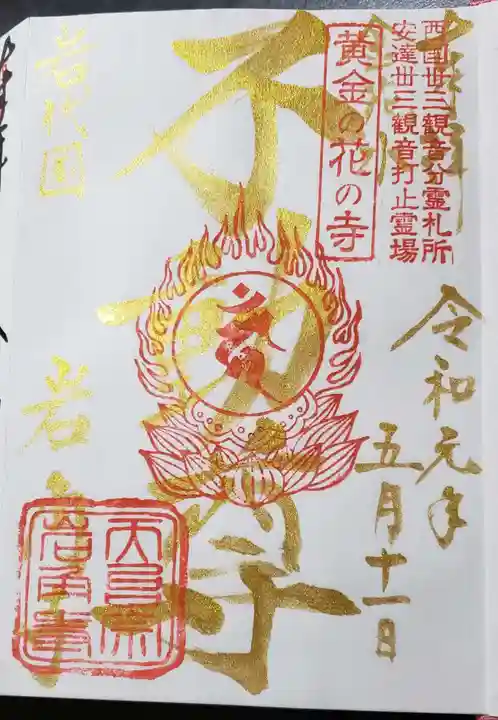 西国卅三観音分霊札所
安達卅三観音打止霊場
黄金の花の寺
令和元年
五月十一日
不動尊
岩代国
岩角寺
天台宗
岩角寺